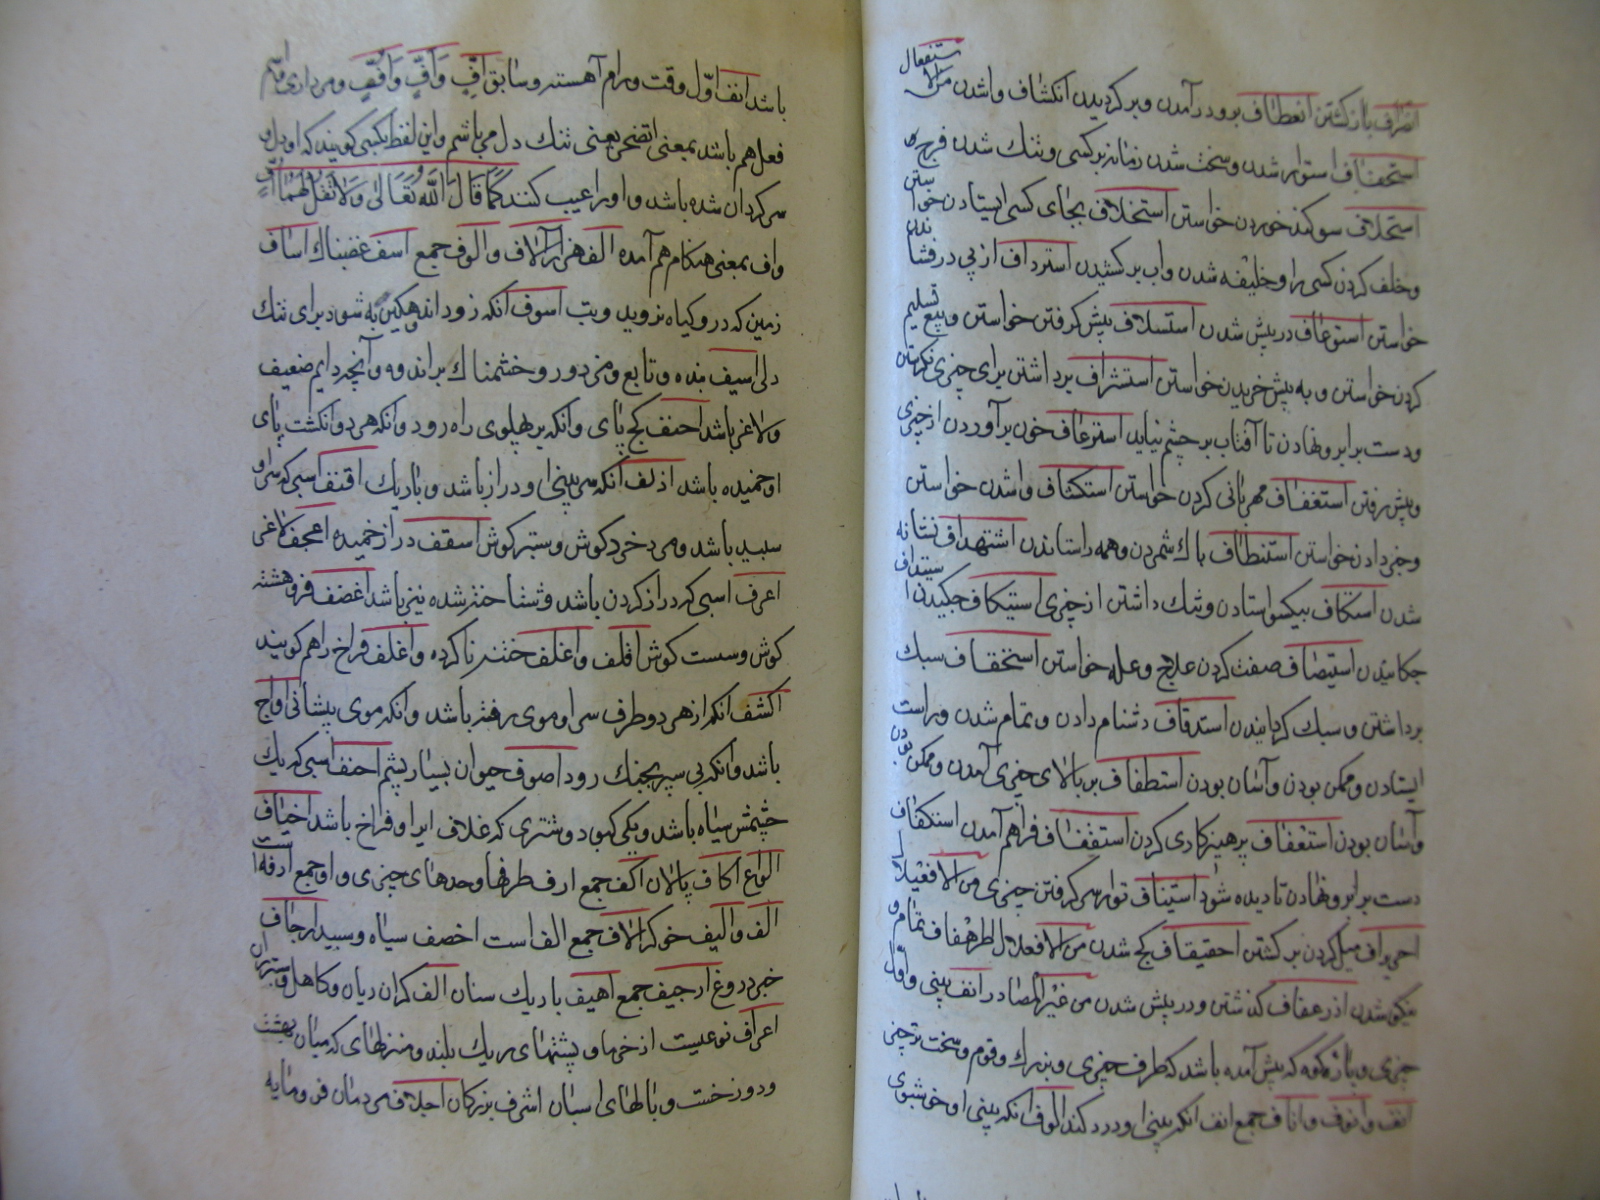 انصراف باز کشتن انعطاف برو در آمدن و بر کردیدن انکشاف واشدن من الاستفعال
استحصاف استوار شدن و سخت شدن زمانه بر کسی و تنك شدن فرج
استحلاف سوکند خوردن خواستن استخلاف بجای کسی ایستادن خواستن
و خلف کردن کسی را و خلیفه شدن و اب بر کشیدن استرداف از پی در نشاندن
خواستن استرعاف در پیش شدن استسلاف پیش کرفتن خواستن و بیع تسلیم
کردن خواستن و به پیش خریدن خواستن استشراف برداشتن برای چیزی نکرستن
و دست برابرو نهادن تا آفتاب بر چشم نیاید استرعاف خون برآوردن از چیزی
و پیش رفتن استعطاف مهربانی کردن خواستن استکشاف واشدن خواستن
و خبر دادن خواستن استنطاف پاك شمردن و همه را ستاندن استهداف نشانه
شدن استنکاف بیکسو استادن و ننك داشتن از چیزی استیکاف چکیدن
چکانیدن استیصاف صفت کردن علاج و عله خواستن استخفاف سبك
برداشتن و سبك کردانیدن استدفاف دشنام دادن و تمام شدن و راست
ایستادن و ممکن بودن و آسان بودن استطفاف بر بالای چیزی آمدن و ممکن بودن
و آسان بودن استعفاف پرهیزکاری کردن استقفاف فراهم آمدن استکفاف
دست برابرو نهادن تا دیده شود استیناف از سر کرفتن چیزی من الافعیلال
احریراف میل کردن بر کشتن احقیقاف کج شدن من الافعلال اطرهفاف تمام و
نیکو شدن اذرعفاف کذشتن و در پیش شدن من غیر المصادر انف بینی و اول
چیزی و پاره کوه که پیش آمده باشد که طرف چیزی و بزرك و قوم و سخت تر چیزی
انف و انوف و اناف جمع انف انکه بینی او درد کند انوف انکه بینی او خوشبوی
باشد انف اول وقت و رام آهسته و سابق اف و اف و اف
فعل هم باشد بمعنی اتضجر یعنی تنك دل می باشم و این لفظ بکسی کویند که
سر کردان شده باشد و او را عیب کنند کما قال الله تعالی ولا تقل لهما اف
و اف بمعنی هنکام هم آمده الف هزار آلاف و الوف جمع اسف غضبناك اساف
زمین که درو کیاه نروید اسوف انکه زود اندوهکین شود برای تنك
دلی اسیف بنده و تابع و مزدور و خشمناك بر اندوه و ضعیف
و لاغر باشد احنف کج پای و انکه بر پهلوی راه رود و انکه هر دو انکشت پای
او خمیده باشد اذلف انکه سر بینی او دراز باشد و باریك اقنف اسبی که سر او
سپید باشد و مرد خرد کوش و ستبر کوش اسقف دراز خمیده اعجف لاغر
اعرف اسبی که دراز کردن باشد ختنه شده نیز باشد اغضف فروهشته
کوش و سست کوش اقلف و اغلف ختنه ناکرده و اغلف فراخ را هم کویند
اکشف انکه از هر دو طرف سر او موی رفته باشد و انکه موی پیشانی او
باشد و انکه بی سپر بجنك رود اصوف حیوان بسیار پشم اخیف اسبی که یك
چشمش سیاه باشد و یکی کبود و شتری که غلاف ایر او فراخ باشد اخیاف
انواع اکاف پالان اکف جمع ارف طرفها و حدهای چیزی و او جمع ارفه است
الف و الیف خوکر الاف جمع الف است اخصف سیاه و سپید ارجاف
خبر دروغ اراجیف جمع اهیف باریك میان الف کران زیان و کاهل
اعراف نوعیست از خرما و پشتهای ریك بلند و منزلهای که میان بهشت
و دوزخست و یالهای اسبان اشرف بزرکان اجلاف مردمان فرومایه